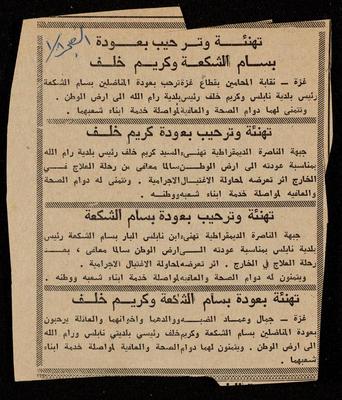 تهنئة وترحيب بعودة
بسام الشكعة وكريم خلف
غزة – نقابة المحامين بقطاع غزة ترحب بعودة المناضلين بسام الشكعة
رئيس بلدية نابلس وكريم خلف رئيس بلدية رام الله الى ارض الوطن .
ونتمنى لهما دوام الصحة والعافية لمواصلة خدمة ابناء شعبهما .
تهنئة وترحيب بعودة كريم خلف
جبهة الناصرة الديمقراطية تهنىء السيد كريم خلف رئيس بلدية رام الله
بمناسبة عودته الى ارض الوطن سالما معافى من رحلة العلاج في
الخارج اثر تعرضه لمحاولة الاغتيال الاجرامية . ونتمنى له دوام الصحة
والعافيه لمواصلة خدمة ابناء شعبه ووطنه .
تهنئة وترحيب بعودة بسام الشكعة
جبهة الناصرة الديمقراطية تهنىء ابن نابلس البار بسام الشكعة رئيس
بلدية نابلس بمناسبة عودته الى ارض الوطن سالما معافى ، بعد
رحلة العلاج في الخارج . اثر تعرضه لمحاولة الاغتيال الاجرامية .
ويتمنون له دوام الصحة والعافيه لمواصلة خدمة ابناء شعبه ووطنه .
تهنئة بعودة بسام الشكعة وكريم خلف
غزة – جمال وعماد ووالدهما واخوانهما والعائلة يرحبون
بعودة المناضلين بسام الشكعة وكريم خلف رئيسي بلديتي نابلس ورام الله
الى ارض الوطن . ويتمنون لهما دوام الصحة والعافية لمواصلة خدمة ابناء
شعبهما .